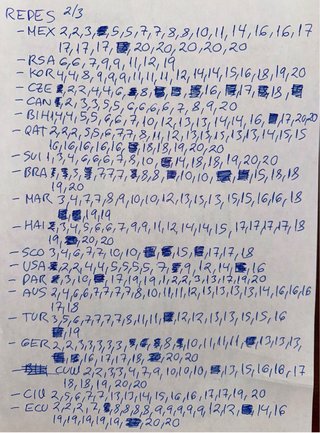 REDES 2/3
- MEX 2,2,3, 5,5,7,7,8,8,10,11,14,16,16,17
17,17,17, 20,20,20,20,20
- RSA 6,6,7,9,9,11,12,19
- KOR 4,4,8,9,9,9,11,11,11,12,14,14,15,16,18,19,20
- CZE 2,2,4,4,6, 8, 16, 17, 18
- CAN 2,3,3,5,5,6,6,6,6,7,8,9,20
- BIH 4,4,5,5,6,6,7,10,12,13,13,14,14,16, 17,20,20
- QAT 2,2,2,5,5,6,7,7,8,11,12,13,13,13,13,13,14,15,15
16,16,16,16,16, 18,18,19,20,20
- SUI 1,3,4,6,6,6,7,8,10, 14,18,18,19,20,20
- BRA 3, 7,7,7, 8,8, 10,10, 15,18,18
19,20
- MAR 3,4,7,7,8,9,10,10,12,13,13,15,15,16,16,18
19,19
- HAI 3,4,5,6,6,7,9,9,11,12,14,14,15,17,17,17,18
19, 20,20
- SCO 3,4,6,7,7,10,10, 15, 17,17,18
- USA 2,2,4,4,5,5,5,5,7, 9,12,14, 16
- PAR 3,10, 17,19,19,1,2,2,3,13,17,19,20
- AUS 2,4,6,6,7,7,7,7,8,10,11,11,12,13,13,13,14,16,16,16
17,18
- TUR 3,5,6,7,7,7,7,8,11,11, 12,12,13,15,15,16
19
- GER 2,2,3,3,3,3,3, 10,11,11, 13,13,13
16,17,17,18, 20,20
- CUW 2,2,2,3,3,4,7,9,10,10,10, 13,15,16,16,17
18,18,19,20,20
- CIV 2,5,6,7,7,13,14,15,16,16,17,17,19,20
- ECU 2,2,2,7, 8,8,8,8,9,9,9,9,12,12, 14,16
19,19,19,19, 20,20